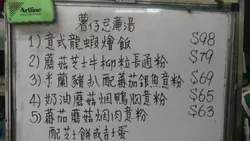 Artline
薯仔忌廉湯
1) 意式龍蝦燴飯 $98
2) 蘑菇芝士牛柳粒長通粉 $79
3) 米蘭豬扒配蕃茄銀魚意粉 $69
4) 奶油蘑菇烟鴨胸意粉 $65
5) 蕃茄蘑菇烟肉意粉 $63
配芝士餅或吉士蛋